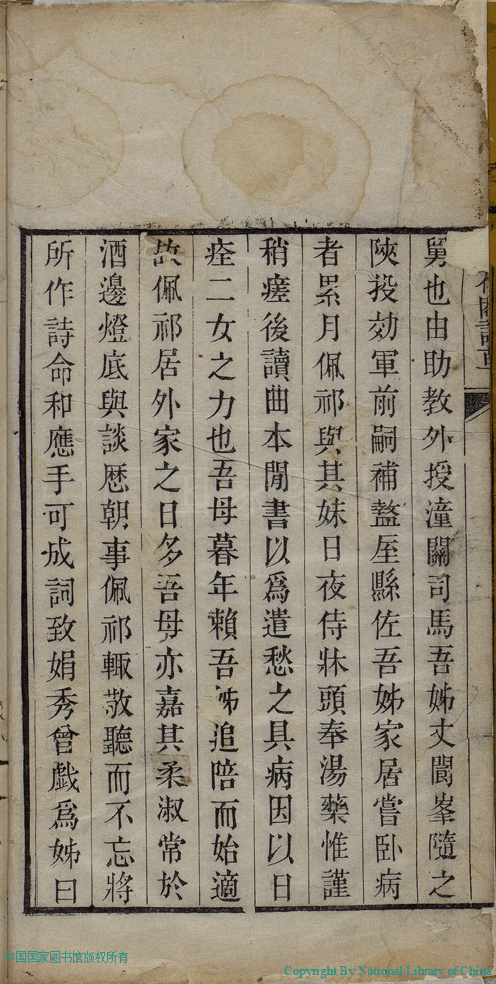 舅也由助教外授潼關司馬吾姊丈閬峯隨之
陜投効軍前嗣補盩厔縣佐吾姊家居嘗卧病
者累月佩祁與其妹日夜侍牀頭奉湯藥惟謹
稍瘥後讀曲本閒書以爲遣愁之具病因以日
痊二女之力也吾母暮年賴吾姊追陪而始適
故佩祁居外家之日多吾母亦嘉其柔淑常於
酒邊燈底與談歷朝事佩祁輙敬聽而不忘將
所作詩命和應手可成詞致娟秀曾戲爲姊曰
中国国家图书馆版权所有
Copyright By National Library of China